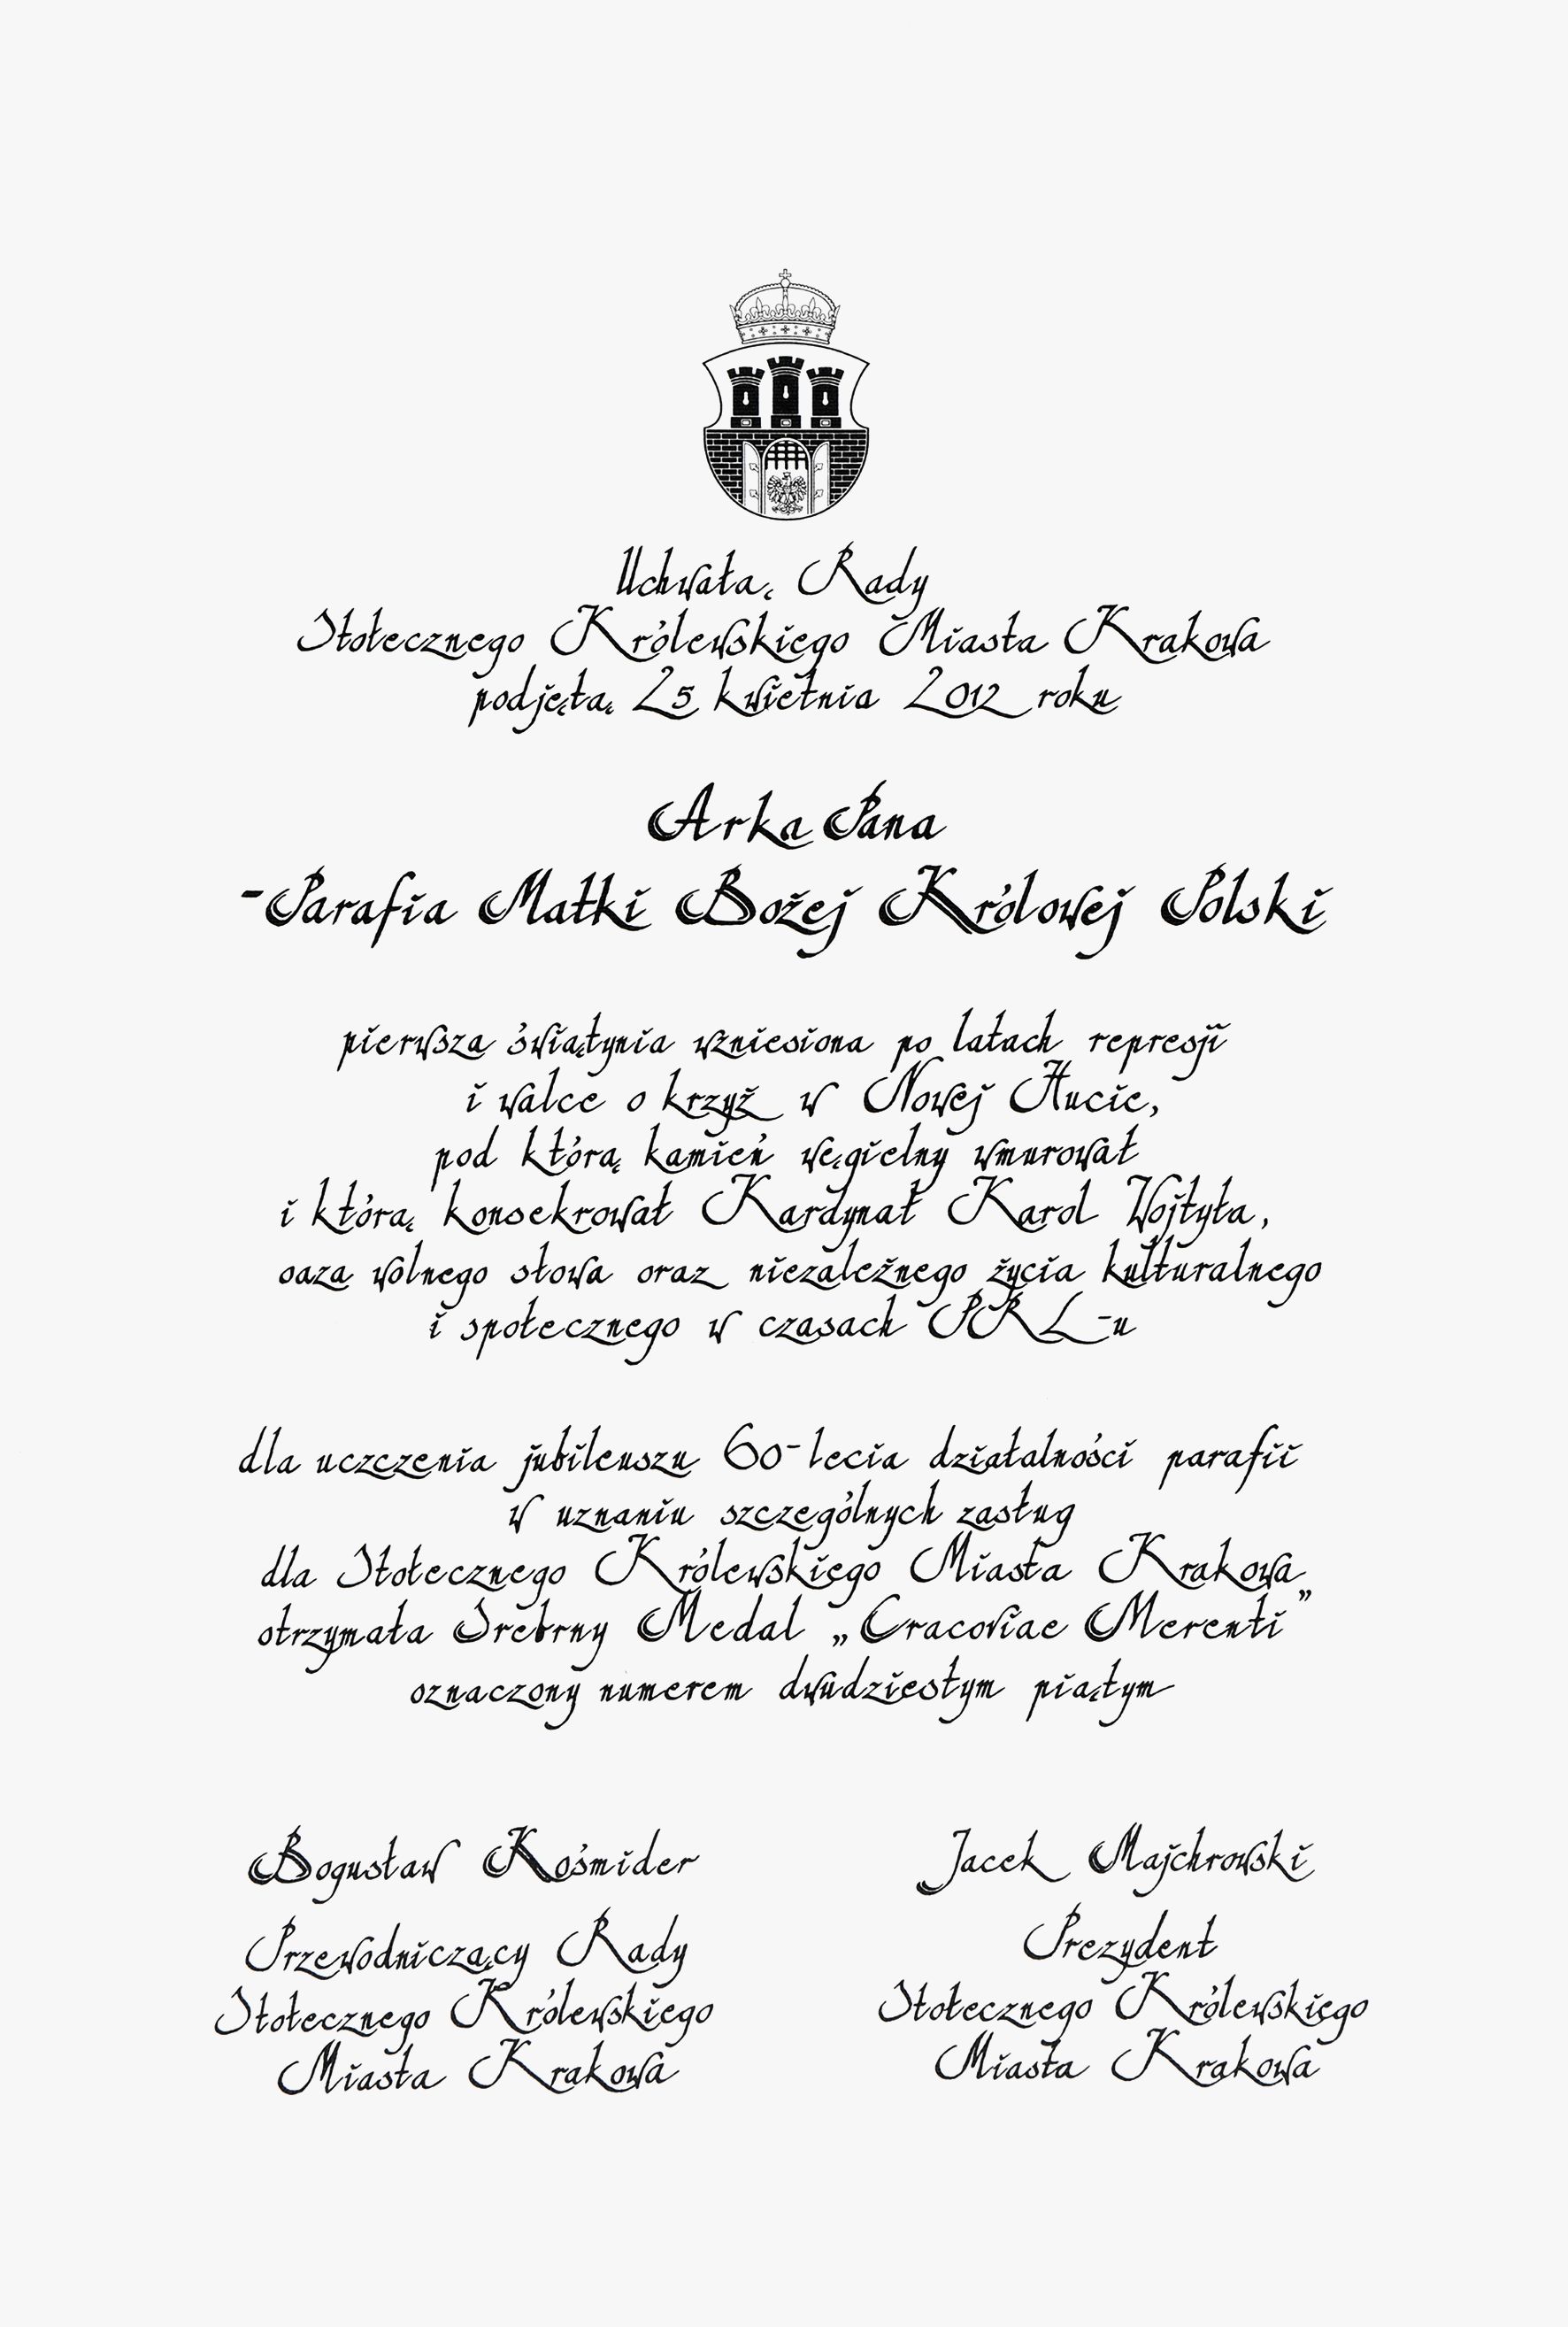 Uchwałą Rady
Stołecznego Królewskiego Miasta Krakowa
podjętą 25 kwietnia 2012 roku
Arka Pana
-Parafia Matki Bożej Królowej Polski
pierwsza świątynia wzniesiona po latach represji
i walce o krzyż w Nowej Hucie,
pod którą kamień węgielny wmurował
i którą konsekrował Kardynał Karol Wojtyła,
oaza wolnego słowa oraz niezależnego życia kulturalnego
i społecznego w czasach PRL-u
dla uczczenia jubileuszu 60-lecia działalności parafii
w uznaniu szczególnych zasług
dla Stołecznego Królewskiego Miasta Krakowa
otrzymała Srebrny Medal „Cracoviae Merenti”
oznaczony numerem dwudziestym piątym
Bogusław Kośmider
Przewodniczący Rady
Stołecznego Królewskiego
Miasta Krakowa
Jacek Majchrowski
Prezydent
Stołecznego Królewskiego
Miasta Krakowa